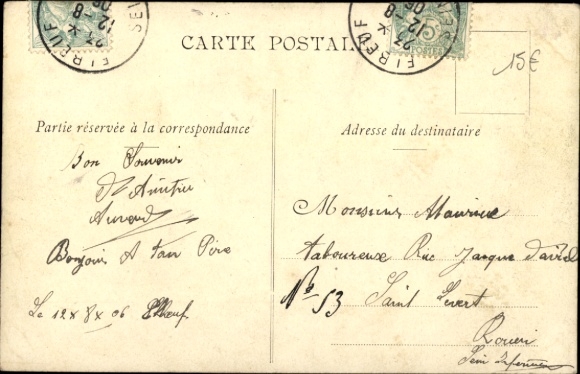 CARTE POSTALE
ELBEUF
12 -8 06
ELBEUF
12 -8 06
5c
POSTES
15€
Partie réservée à la correspondance
Adresse du destinataire
Bon Souvenir
D'Amitié
Bonjour A ton Père
Le 12 x 8 x 06 Elbeuf
Monsieur Maurice
taboureux Rue Jacque
No 53 Saint Severt
Rouen
Sein inferieure